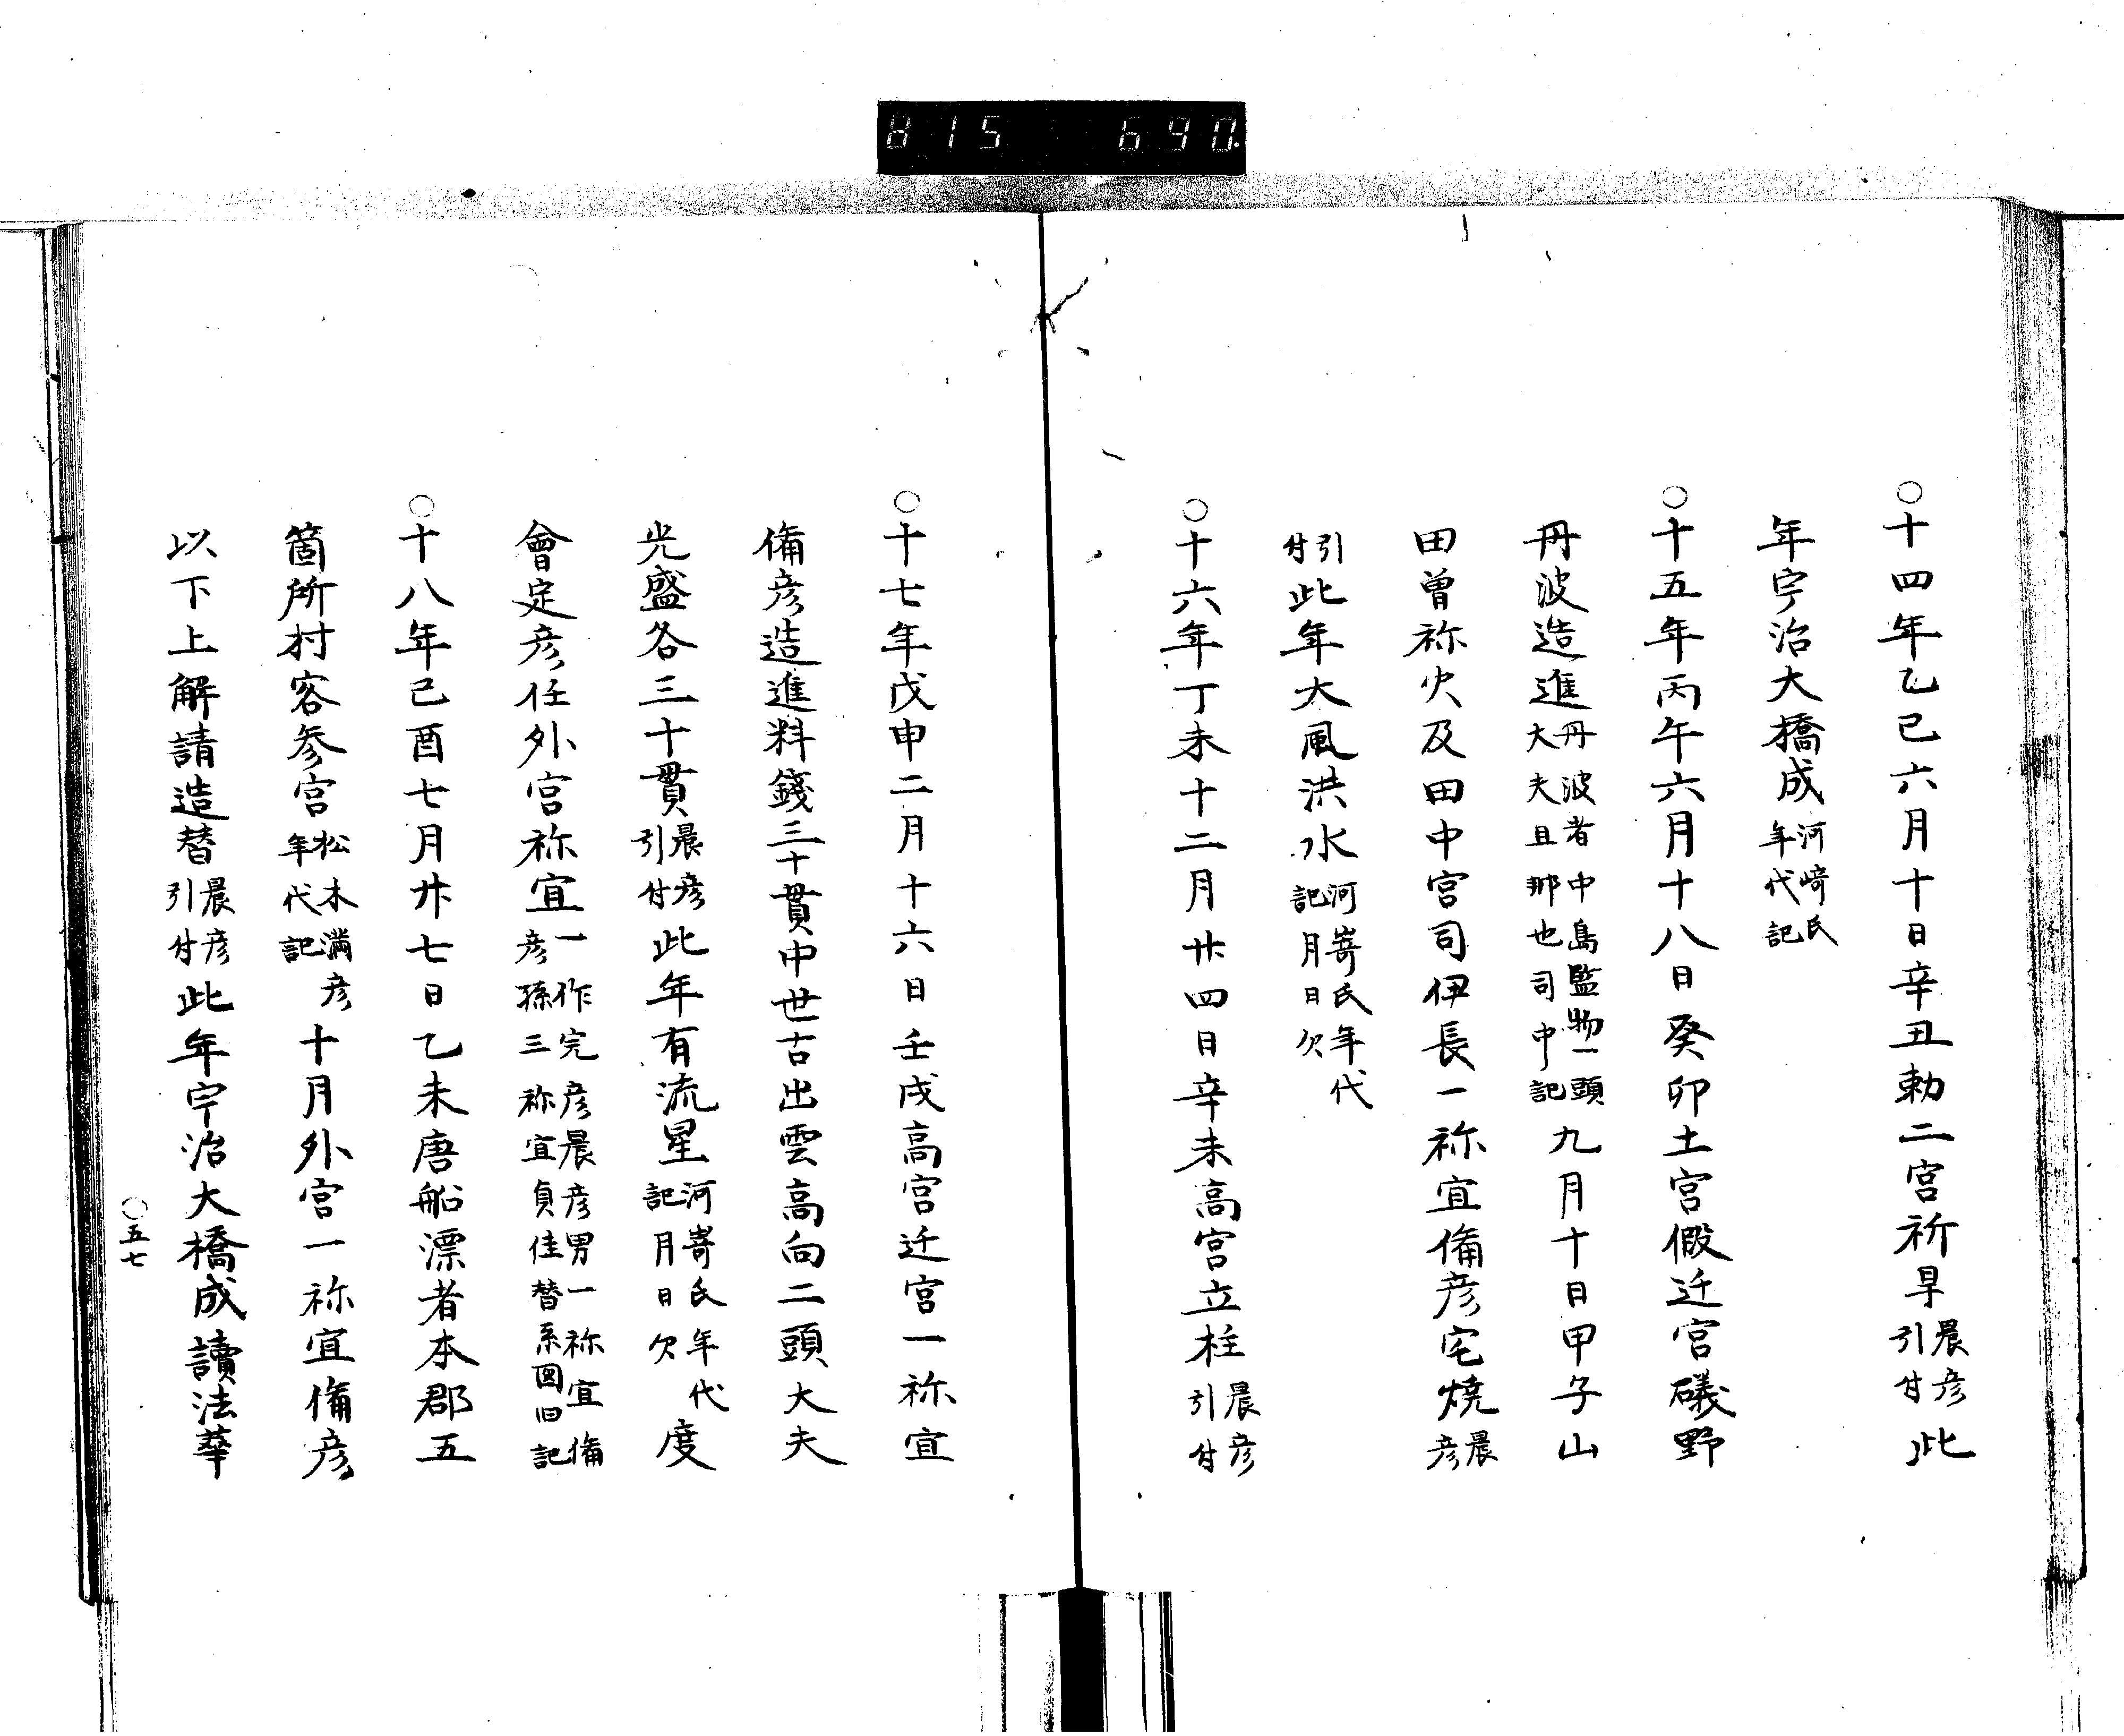 815 690.
○十四年乙巳六月十日辛丑勅二宮祈旱晨彦引付此
年宇治大橋成河崎氏年代記
○十五年丙午六月十八日癸卯土宮假迁宮礒野
丹波造進丹波者中島監物一頭大夫且那也司中記九月十日甲子山
田曽祢火及田中宮司伊長一祢宜備彦宅焼晨彦
引付此年大風洪水河嵜氏年代記月日欠
○十六年丁未十二月廿四日辛未高宮立柱晨彦引付
○十七年戊申二月十六日壬戌高宮迁宮一祢宜
備彦造進料錢三十貫中世古出雲高向二頭大夫
光盛各三十貫晨彦引付此年有流星河嵜氏年代記月日欠度
會定彦任外宮祢宜一作完彦晨彦男一祢宜備彦孫三祢宜貞佳替系図旧記
○十八年己酉七月廿七日乙未唐船漂者本郡五
箇所村客参宮松木満彦年代記十月外宮一祢宜備彦
以下上解請造替晨彦引付此年宇治大橋成讀法華
○五七